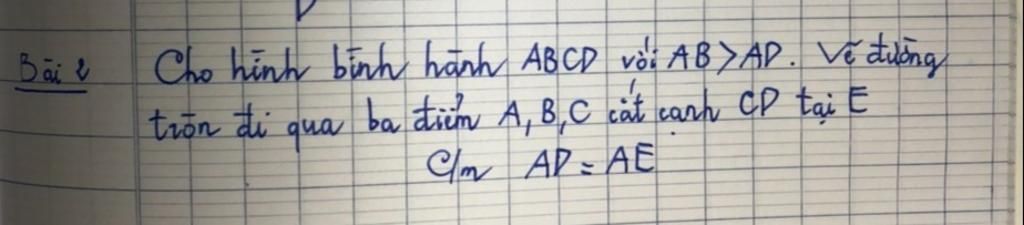 Bài 2 Cho hình bình hành ABCD với AB > AD. Vẽ đường
tròn đi qua ba điểm A, B, C cắt cạnh CD tại E
C/m AD = AE